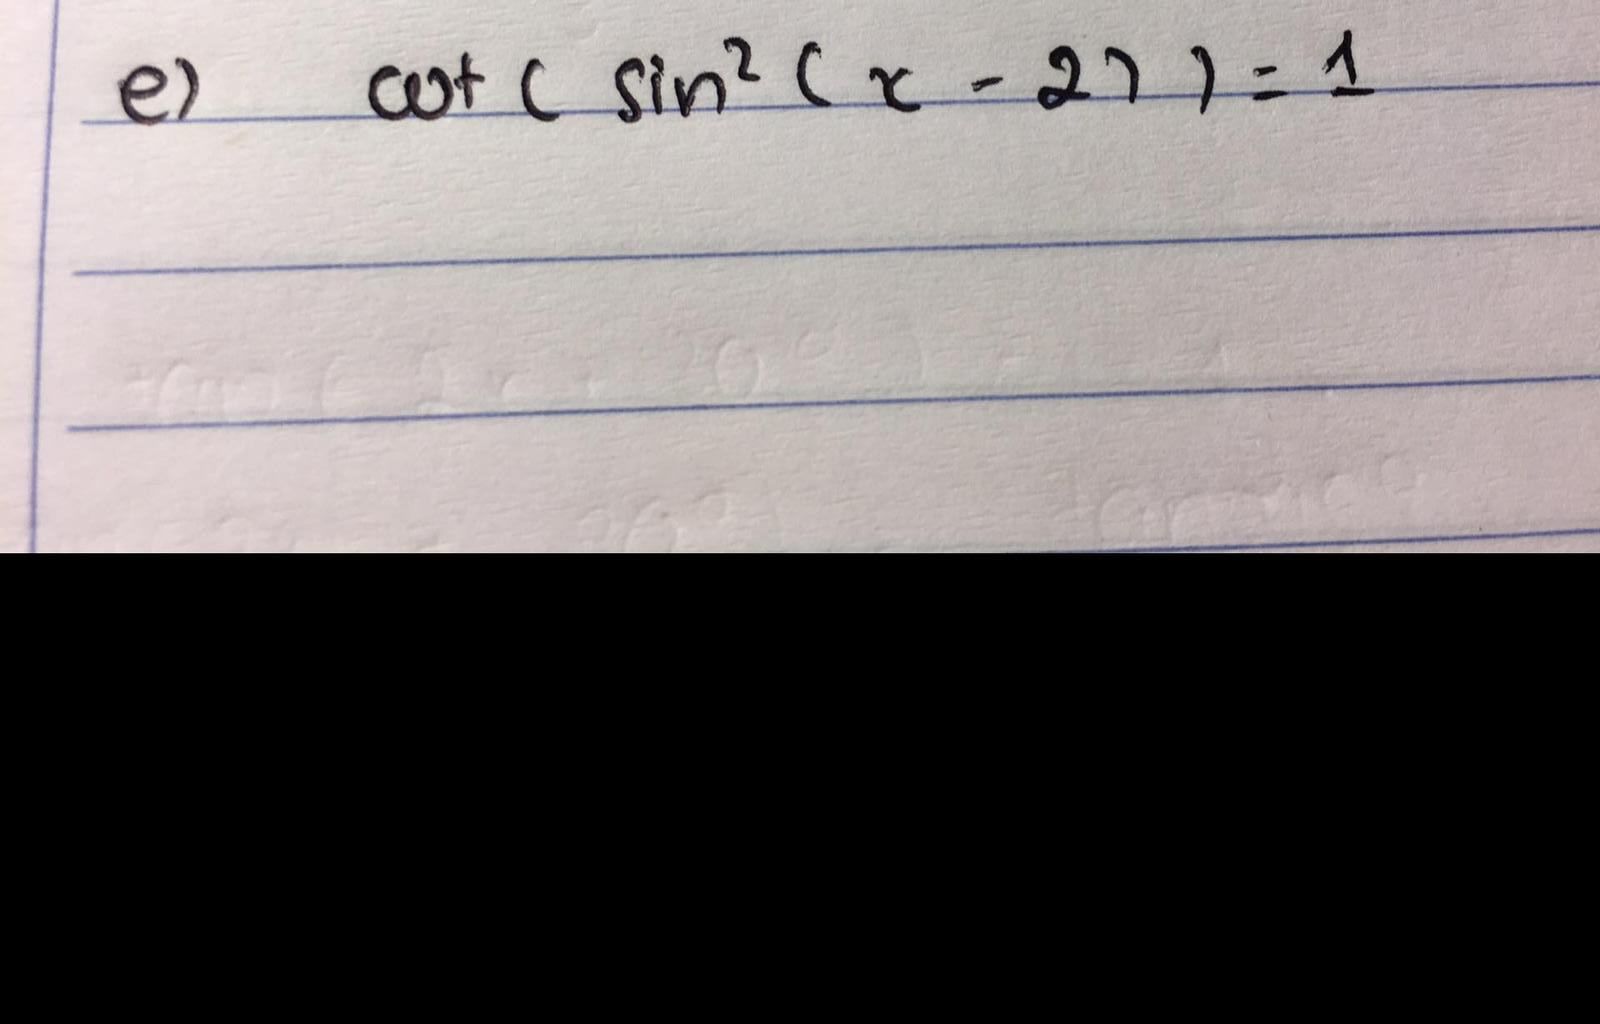 e) cot ( sin² ( x - 2) ) = 1